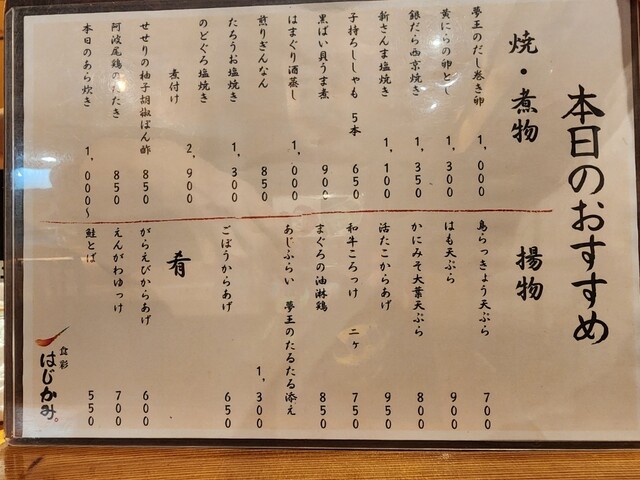 本日のおすすめ
焼・煮物
夢王のだし巻き卵 1,000
黄にらの卵とじ 1,300
銀だら西京焼き 1,350
新さんま塩焼き 1,100
子持ちししゃも 5本 650
黒ばい貝うま煮 900
はまぐり酒蒸し 1,000
煎りぎんなん 850
たちうお塩焼き 1,300
のどぐろ塩焼き
煮付け 2,900
せせりの柚子胡椒ぽん酢 850
阿波尾鶏のたたき 850
本日のあら炊き 1,000〜
揚物
島らっきょう天ぷら 700
はも天ぷら 900
かにみそ大葉天ぷら 800
活たこからあげ 950
和牛ころっけ 二ヶ 750
まぐろの油淋鶏 850
あじふらい 夢王のたるたる添え 1,300
ごぼうからあげ 650
肴
がらえびからあげ 600
えんがわゆっけ 700
鮭とば 550
食彩
はじかみ。